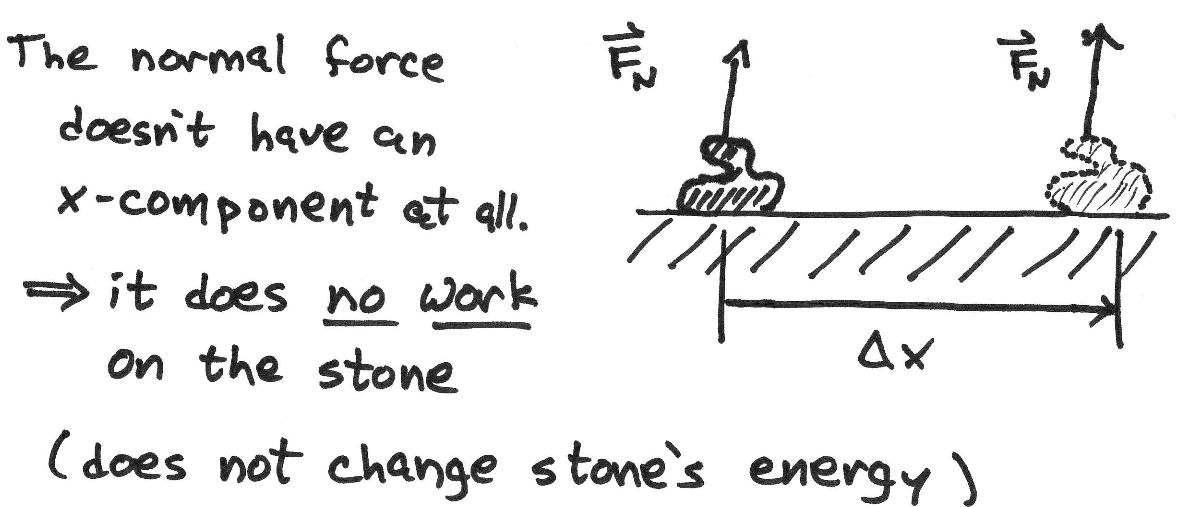 The normal force
doesn't have an
x-component at all.
⇒ it does no work
on the stone
(does not change stone's energy)
F⃗_N
F⃗_N
Δx